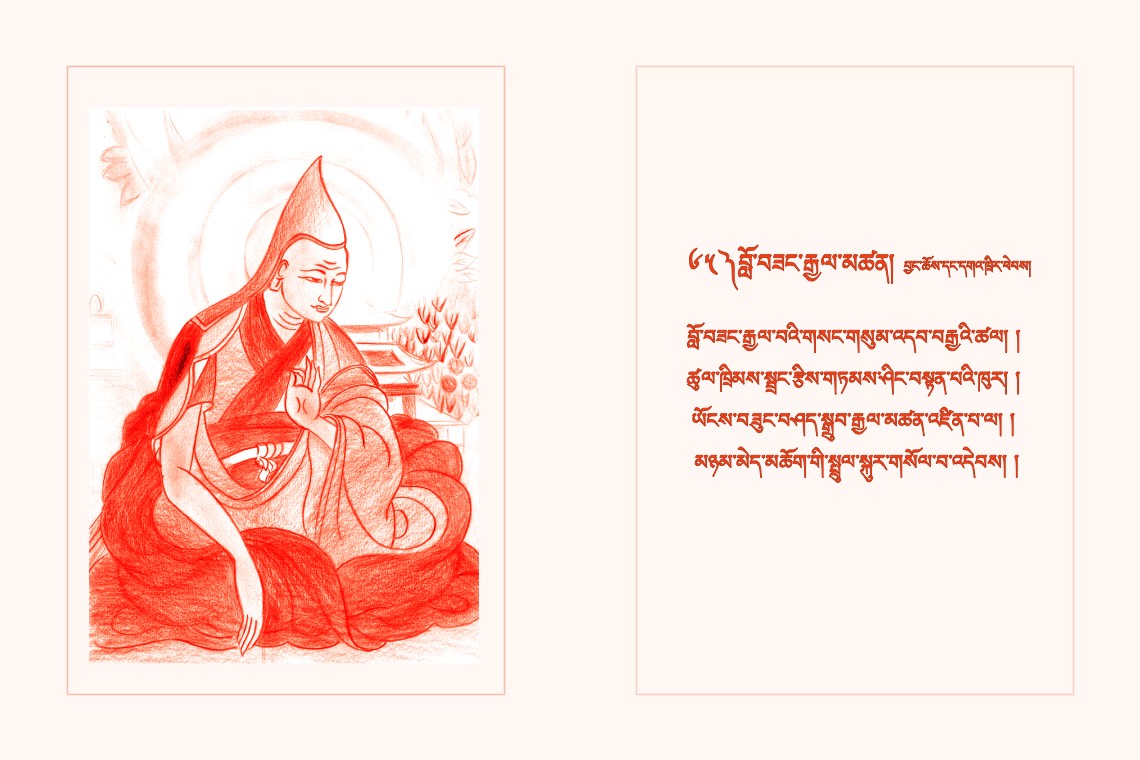 ༦༥ ༽ བློ་བཟང་རྒྱལ་མཚན། བྱང་ཆོས་དང་དགའ་ཁྲིར་ཕེབས།
བློ་བཟང་རྒྱལ་བའི་གསང་གསུམ་འདབ་བརྒྱའི་ཚལ། །
ཚུལ་ཁྲིམས་སྦྲང་རྩིས་གཏམས་ཤིང་བསྟན་པའི་ཁུར། །
ཡོངས་བཟུང་བཤད་སྒྲུབ་རྒྱལ་མཚན་འཛིན་པ་ལ། །
མཉམ་མེད་མཆོག་གི་སྤྲུལ་སྐུར་གསོལ་བ་འདེབས། །